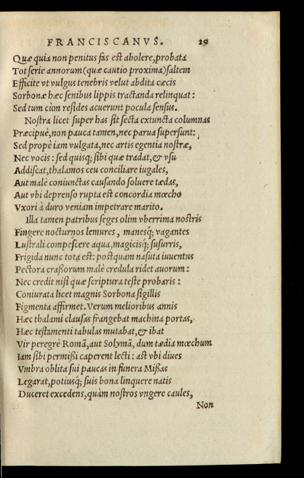 FRANCISCANVS. 29
Quæ quia non penitus fas est abolere, probata
Tot serie annorum (quæ cautio proxima) saltem
Efficite vt vulgus tenebris velut abdita cæcis
Sorbonæ hæc senibus lippis tractanda relinquat:
Sed tum cùm resides acuerunt pocula sensus.
Nostra licet super has sit secta extructa columnas
Præcipuè, non pauca tamen, nec parua supersunt:
Sed propè iam vulgata, nec artis egentia nostræ,
Nec vocis: sed quisq; sibi quæ tradat, & vsu
Addiscat, thalamos ceu conciliare iugales,
Aut malè coniunctas causando soluere tædas,
Aut vbi deprenso rupta est concordia mœcho
Vxori à duro veniam impetrare marito.
Illa tamen patribus seges olim vberrima nostris
Fingere nocturnos lemures, manesq; vagantes
Lustrali compescere aqua, magicisq; susurris,
Frigida nunc tota est: postquam nasuta iuuentus
Pectora crassorum malè credula ridet auorum:
Nec credit nisi quæ scriptura teste probaris:
Coniurata licet magnis Sorbona sigillis
Figmenta affirmet. Verum melioribus annis
Hæc thalami clausas frangebat machina portas,
Hæc testamenti tabulas mutabat, & ibat
Vir peregrè Romã, aut Solymã, dum tædia mœchum
Iam sibi permissi caperent lecti: ast vbi diues
Vmbra oblita sui paucas in funera Missas
Legarat, potiusq; suis bona linquere natis
Duceret excedens, quàm nostros vngere caules,
Non